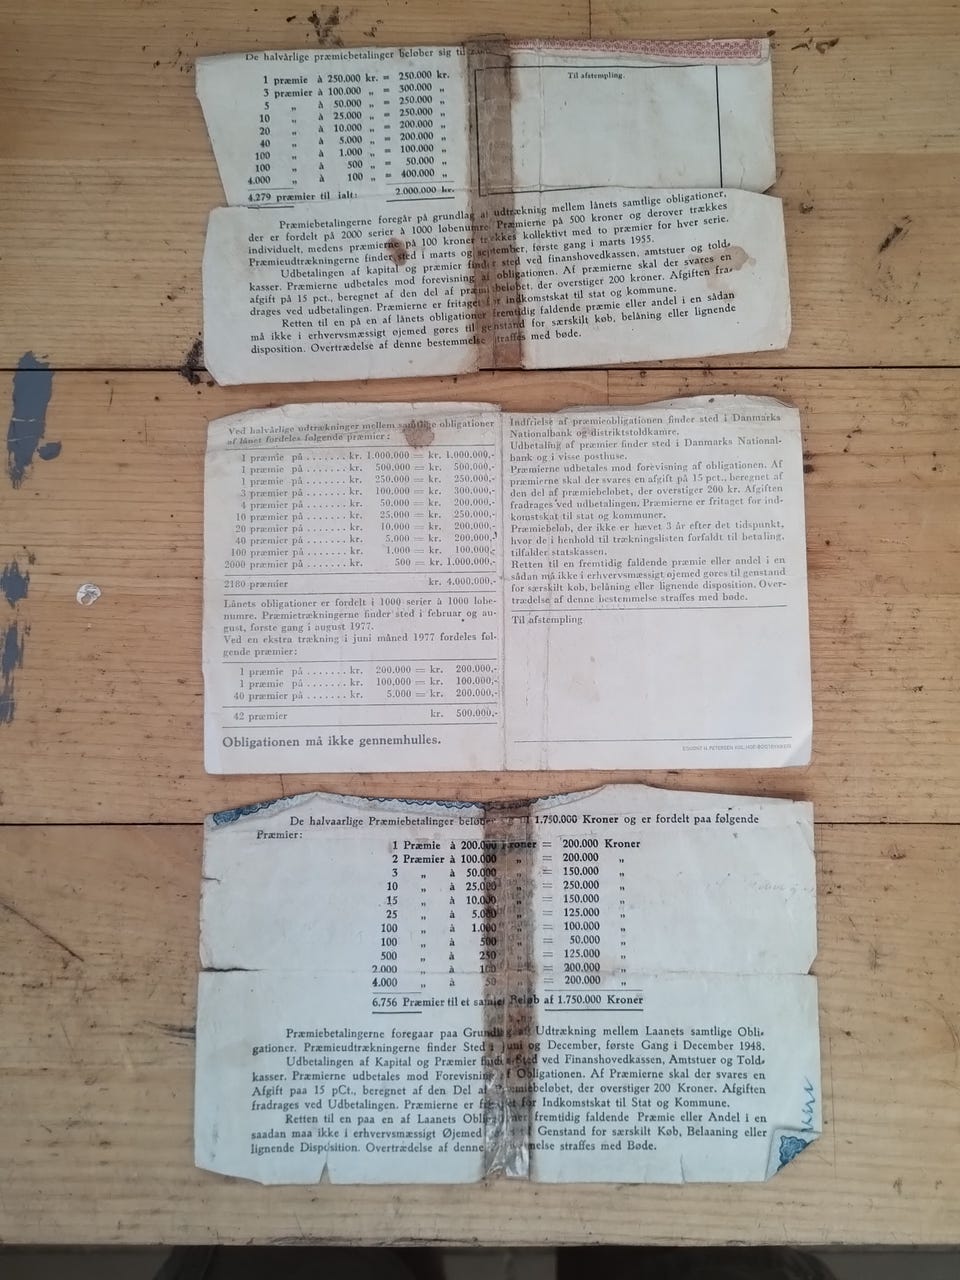 De halvårlige præmiebetalinger beløber sig til
1 præmie à 250.000 kr. = 250.000 kr.
3 præmier à 100.000 „ = 300.000 „
5 „ à 50.000 „ = 250.000 „
10 „ à 25.000 „ = 250.000 „
20 „ à 10.000 „ = 200.000 „
40 „ à 5.000 „ = 200.000 „
100 „ à 1.000 „ = 100.000 „
100 „ à 500 „ = 50.000 „
4.000 „ à 100 „ = 400.000 „
4.279 præmier til ialt: 2.000.000 kr.
Til afstempling.
Præmiebetalingerne foregår på grundlag af udtrækning mellem lånets samtlige obligationer,
der er fordelt på 2000 serier à 1000 løbenumre. Præmierne på 500 kroner og derover trækkes
individuelt, medens præmierne på 100 kroner trækkes kollektivt med to præmier for hver serie.
Præmieudtrækningerne finder sted i marts og september, første gang i marts 1955.
Udbetalingen af kapital og præmier finder sted ved finanshovedkassen, amtstuer og told-
kasser. Præmierne udbetales mod forevisning af obligationen. Af præmierne skal der svares en
afgift på 15 pct., beregnet af den del af præmiebeløbet, der overstiger 200 kroner. Afgiften fra-
drages ved udbetalingen. Præmierne er fritaget for indkomstskat til stat og kommune.
Retten til en på en af lånets obligationer fremtidig faldende præmie eller andel i en sådan
må ikke i erhvervsmæssigt øjemed gøres til genstand for særskilt køb, belåning eller lignende
disposition. Overtrædelse af denne bestemmelse straffes med bøde.
Ved halvårlige udtrækninger mellem samtlige obligationer
af lånet fordeles følgende præmier:
1 præmie på . . . . . . . kr. 1.000.000 = kr. 1.000.000,-
1 præmie på . . . . . . . kr. 500.000 = kr. 500.000,-
1 præmie på . . . . . . . kr. 250.000 = kr. 250.000,-
3 præmier på . . . . . . kr. 100.000 = kr. 300.000,-
4 præmier på . . . . . . kr. 50.000 = kr. 200.000,-
10 præmier på . . . . . . kr. 25.000 = kr. 250.000,-
20 præmier på . . . . . . kr. 10.000 = kr. 200.000,-
40 præmier på . . . . . . kr. 5.000 = kr. 200.000,-
100 præmier på . . . . . . kr. 1.000 = kr. 100.000,-
2000 præmier på . . . . . . kr. 500 = kr. 1.000.000,-
2180 præmier kr. 4.000.000,-
Lånets obligationer er fordelt i 1000 serier à 1000 løbe-
numre. Præmietrækningerne finder sted i februar og au-
gust, første gang i august 1977.
Ved en ekstra trækning i juni måned 1977 fordeles føl-
gende præmier:
1 præmie på . . . . . . . kr. 200.000 = kr. 200.000,-
1 præmie på . . . . . . . kr. 100.000 = kr. 100.000,-
40 præmier på . . . . . . kr. 5.000 = kr. 200.000,-
42 præmier kr. 500.000,-
Obligationen må ikke gennemhulles.
Indfrielse af præmieobligationen finder sted i Danmarks
Nationalbank og distriktstoldkamre.
Udbetaling af præmier finder sted i Danmarks National-
bank og i visse posthuse.
Præmierne udbetales mod forevisning af obligationen. Af
præmierne skal der svares en afgift på 15 pct., beregnet af
den del af præmiebeløbet, der overstiger 200 kr. Afgiften
fradrages ved udbetalingen. Præmierne er fritaget for ind-
komstskat til stat og kommuner.
Præmiebeløb, der ikke er hævet 3 år efter det tidspunkt,
hvor de i henhold til trækningslisten forfaldt til betaling,
tilfalder statskassen.
Retten til en fremtidig faldende præmie eller andel i en
sådan må ikke i erhvervsmæssigt øjemed gøres til genstand
for særskilt køb, belåning eller lignende disposition. Over-
trædelse af denne bestemmelse straffes med bøde.
Til afstempling
EGMONT H. PETERSEN KGL. HOF-BOGTRYKKERI
De halvaarlige Præmiebetalinger beløber sig til 1.750.000 Kroner og er fordelt paa følgende
Præmier:
1 Præmie à 200.000 Kroner = 200.000 Kroner
2 Præmier à 100.000 „ = 200.000 „
3 „ à 50.000 „ = 150.000 „
10 „ à 25.000 „ = 250.000 „
15 „ à 10.000 „ = 150.000 „
25 „ à 5.000 „ = 125.000 „
100 „ à 1.000 „ = 100.000 „
100 „ à 500 „ = 50.000 „
500 „ à 250 „ = 125.000 „
2.000 „ à 100 „ = 200.000 „
4.000 „ à 50 „ = 200.000 „
6.756 Præmier til et samlet Beløb af 1.750.000 Kroner
Præmiebetalingerne foregaar paa Grundlag af Udtrækning mellem Laanets samtlige Obli-
gationer. Præmieudtrækningerne finder Sted i Juni og December, første Gang i December 1948.
Udbetalingen af Kapital og Præmier finder Sted ved Finanshovedkassen, Amtstuer og Told-
kasser. Præmierne udbetales mod Forevisning af Obligationen. Af Præmierne skal der svares en
Afgift paa 15 pCt., beregnet af den Del af Præmiebeløbet, der overstiger 200 Kroner. Afgiften
fradrages ved Udbetalingen. Præmierne er fritaget for Indkomstskat til Stat og Kommune.
Retten til en paa en af Laanets Obligationer fremtidig faldende Præmie eller Andel i en
saadan maa ikke i erhvervsmæssigt Øjemed gøres til Genstand for særskilt Køb, Belaaning eller
lignende Disposition. Overtrædelse af denne Bestemmelse straffes med Bøde.